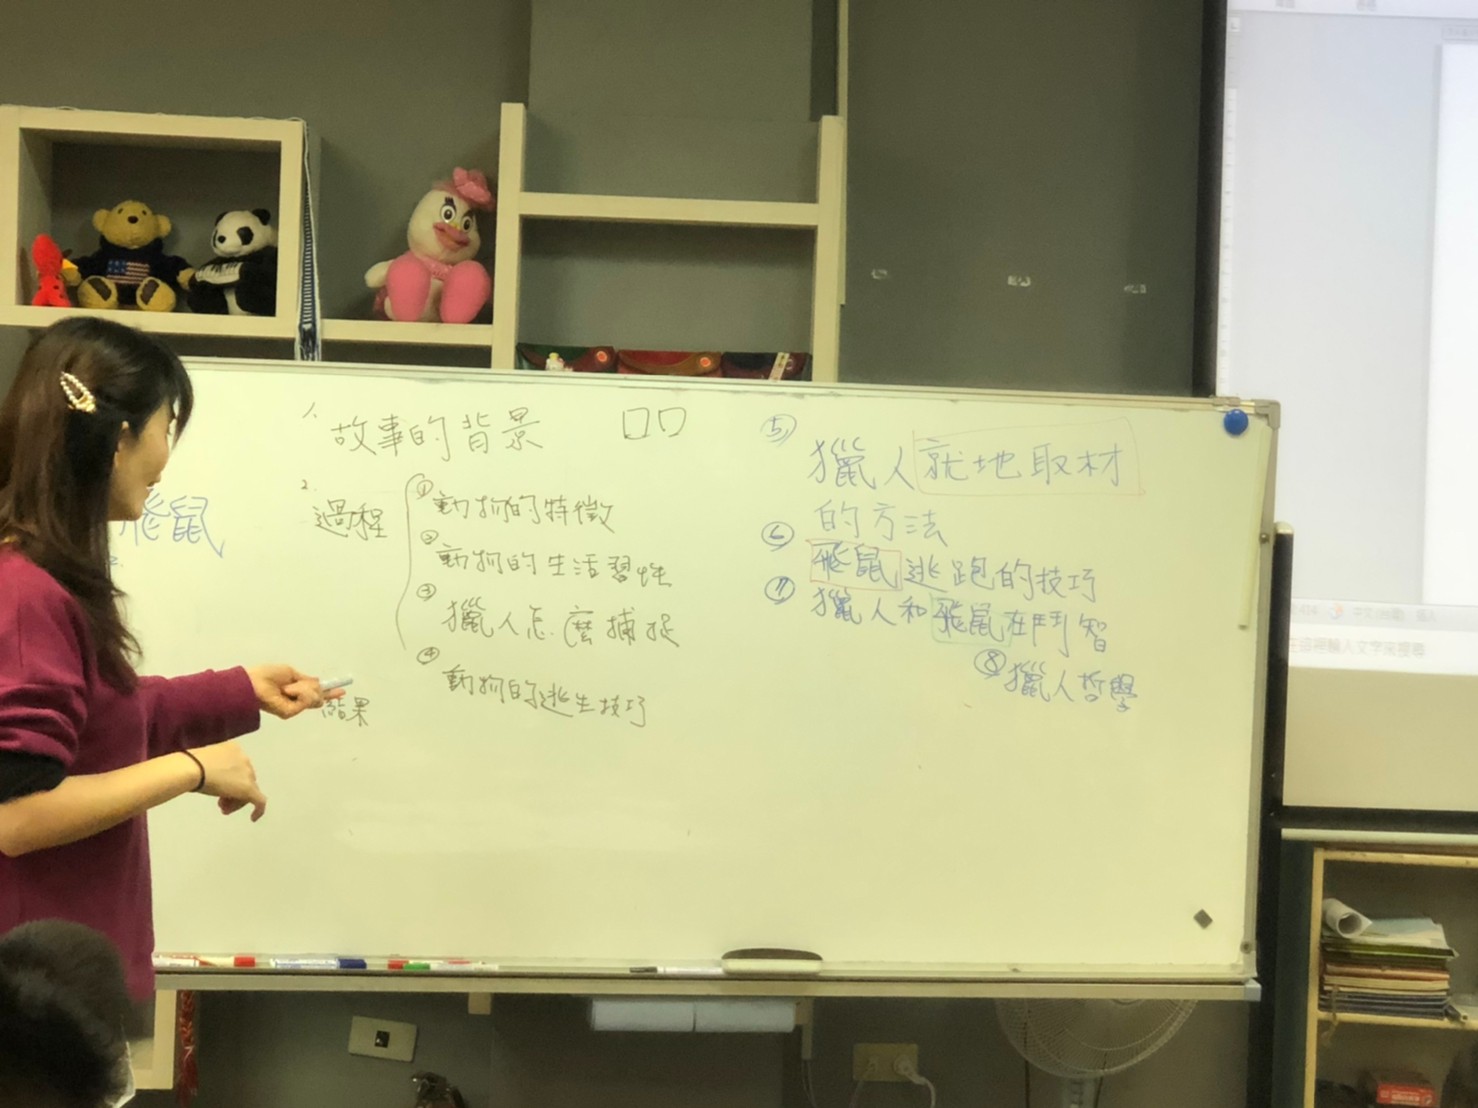 飛鼠
1. 故事的背景 □□
2. 過程
① 動物的特徵
② 動物的生活習性
③ 獵人怎麼捕捉
④ 動物的逃生技巧
結果
⑤ 獵人就地取材
的方法
⑥ 飛鼠逃跑的技巧
⑦ 獵人和飛鼠在鬥智
⑧ 獵人哲學
在這裡輸入文字來搜尋